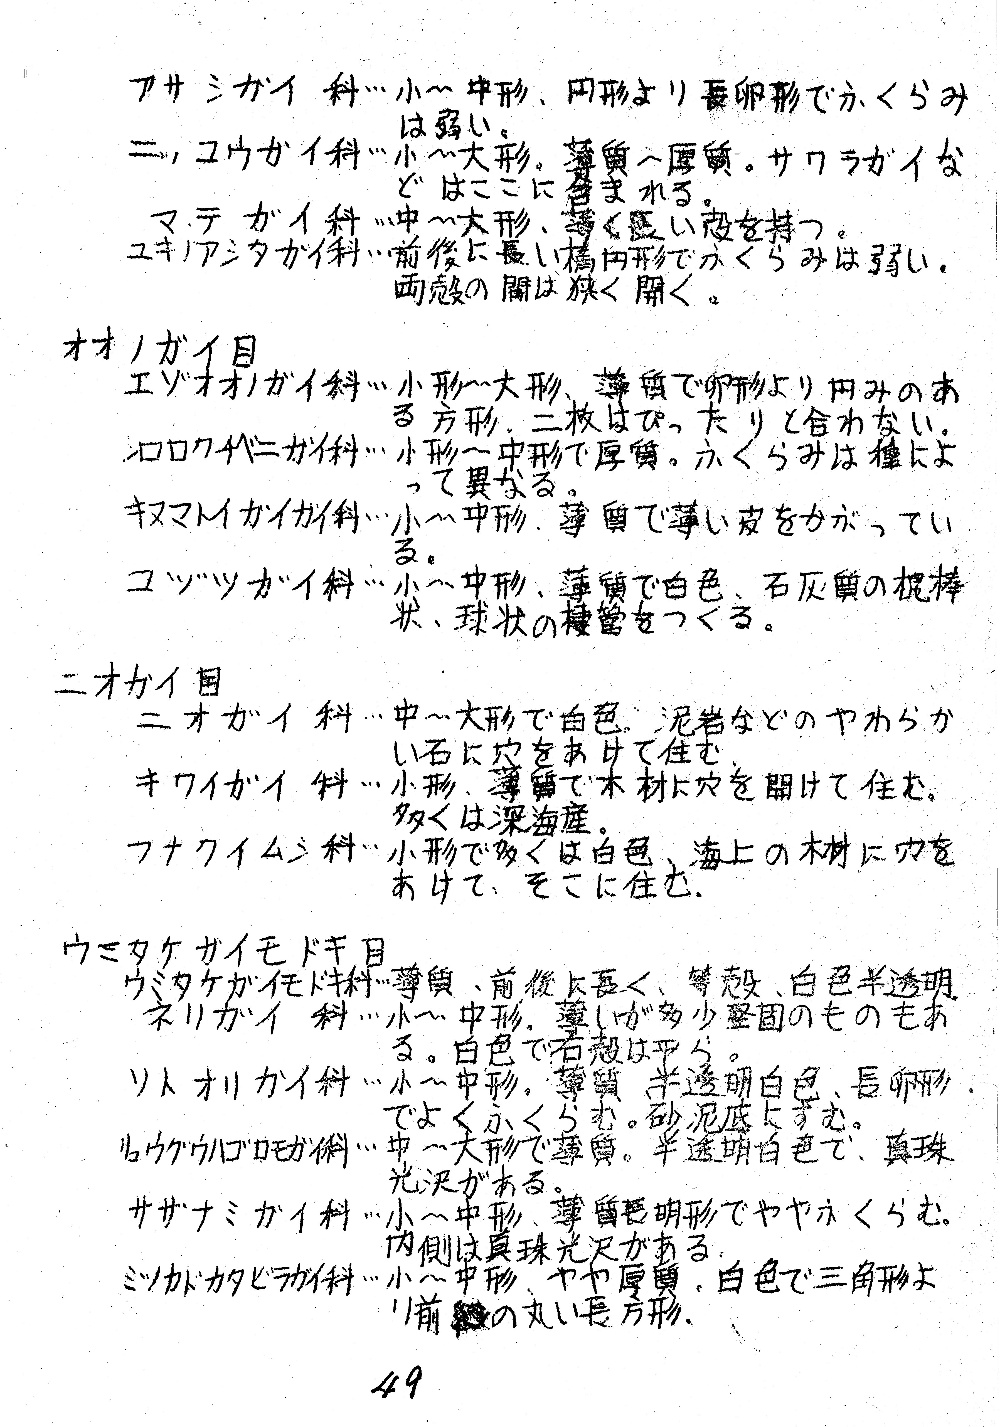 アサジガイ科…小〜中形、円形より長卵形でふくらみ
は弱い。
ニッコウガイ科…小〜大形。薄質〜厚質。サクラガイな
どはここに含まれる。
マテガイ科…中〜大形、薄く長い殻を持つ。
ユキノアシタガイ科…前後に長い楕円形でふくらみは弱い。
両殻の間は狭く開く。
オオノガイ目
エゾオオノガイ科…小形〜大形、薄質で卵形より円みのあ
る方形、二枚はぴったりと合わない。
クチベニガイ科…小形〜中形で厚質。ふくらみは種によ
って異なる。
キヌマトイガイガイ科…小〜中形、薄質で薄い皮をかぶってい
る。
コヅツガイ科…小〜中形、薄質で白色、石灰質の棍棒
状、球状の棲管をつくる。
ニオガイ目
ニオガイ科…中〜大形で白色。泥岩などのやわらか
い石に穴をあけて住む。
キクイガイ科…小形、薄質で木材に穴を開けて住む。
多くは深海産。
フナクイムシ科…小形で多くは白色、海上の木材に穴を
あけて、そこに住む。
ウミタケガイモドキ目
ウミタケガイモドキ科…薄質、前後に長く、等殻、白色半透明。
ネリガイ科…小〜中形。薄いが多少堅固のものもあ
る。白色で右殻は平ら。
ソトオリガイ科…小〜中形。薄質 半透明白色、長卵形
でよくふくらむ。砂泥底にすむ。
リュウグウハゴロモガイ科…中〜大形で薄質。半透明白色で、真珠
光沢がある。
サザナミガイ科…小〜中形、薄質長明形でややふくらむ。
内側は真珠光沢がある。
ミツカドカタビラガイ科…小〜中形、やや厚質、白色で三角形よ
り前の丸い長方形。
49